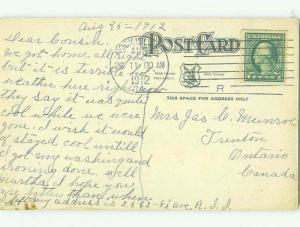 Aug 25-1912
Dear Cousin.
We got home all right
but it is terrible
weather here right
they say it was quite
cool while we were
gone. I wish it would
of stayed cool untill
I got my washing and
Ironing done. well
martha, I hope you
are better than when
address is 2562-8½ ave R. I. I
POST CARD
AUG
26
11-00 AM
1912
R
THIS SPACE FOR ADDRESS ONLY
Mrs Jas C. Munroe
Trenton
Ontario
Canada